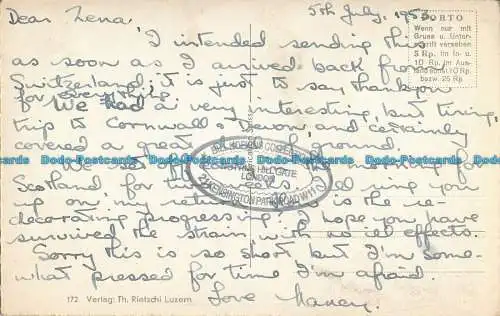 5th July, 1953
Dear Zena,
I intended sending this
as soon as I arrived back from
Switzerland, it is just to say thankyou
for everything.
We had a very interesting, but tiring,
trip to Cornwall & Devon, and certainly
covered a great deal of ground.
We set off tomorrow morning for
Scotland for two weeks, I'll ring you
up on my return. How is the re-
decorating progressing, I hope you have
survived the strain with no ill effects.
Sorry this is so short but I'm some-
what pressed for time I'm afraid.
Love Nancy.
PORTO
Wenn nur mit
Gruss u. Unter-
schrift versehen
5 Rp. im In- u.
10 Rp. im Aus-
land sonst 10 Rp.
bzw. 25 Rp.
NOTTING HILL GATE
LONDON
KENSINGTON PARK ROAD W11
172 Verlag: Th. Rietschi Luzern
Dodo-Postcards Dodo-Postcards Dodo-Postcards Dodo-Postcards Dodo-Postcards